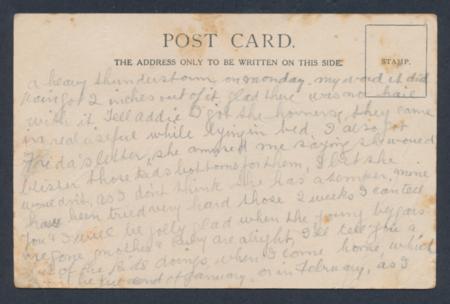 POST CARD.
THE ADDRESS ONLY TO BE WRITTEN ON THIS SIDE.
STAMP.
a heavy thunderstorm on monday. my word it did
rain got 2 inches out of it glad there was no hail
with it. Tell addie I got the they came
in real useful while lying in bed. I also got
Frida's letter, she amused me saying she would
blister those kids bottoms for them, I bet she
wouldn't, as I don't think she has a temper, mine
have been tried very hard those 2 weeks I can tell
you "I will be jolly glad when the young beggars
are gone they are alright, I'll tell you a
of the kids doings when I come home which
be the end of January, or in February, as I